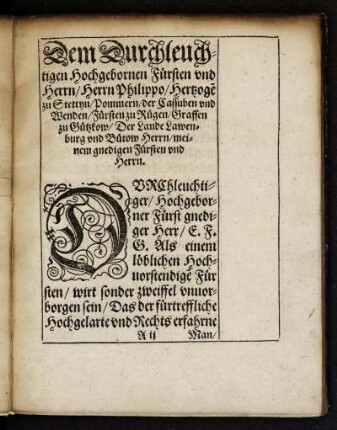 Dem Durchleuch-
tigen Hochgebornen Fürsten vnd
Herrn/ Herrn Philippo/ Hertzogē
zu Stettyn/ Pommern/ der Cassuben vnd
Wenden/ Fürsten zu Rügen/ Graffen
zu Gützkow/ Der Lande Lawen-
burg vnd Bütow Herrn/ mei-
nem gnedigen Fürsten vnd
Herrn.
DVRChleuchti-
ger/ Hochgebor-
ner Fürst gnedi
ger Herr/ E. F.
G. Als einem
löblichen Hoch-
uorstendigē Für
sten/ wirt sonder zweiffel vnuor-
borgen sein/ Das der fürtreffliche
Hochgelarte vnd Rechts erfahrne
A ij Man/